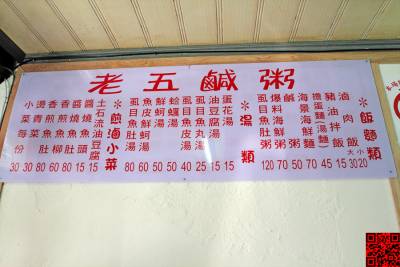 老五鹹粥
*飯麵類
滷肉飯 大小 30 20
豬油拌飯 15
擔蛋麵(湯麵) 45
海景海鮮麵
鹹粥 50
爆料海鮮粥 70
虱目魚肚粥 120
*湯類
蛋花湯 15
油豆腐湯 15
虱目魚丸湯 25
虱目魚皮湯 40
蛤蠣湯
鮮蚵湯 50
魚皮鮮蚵湯 60
虱目魚肚湯 80
*煎滷小菜
土石流油豆腐 15
醬燒魚頭 15
醬燒魚
香煎魚柳 80
香煎魚肚 80
燙青菜 30
小菜每份 30